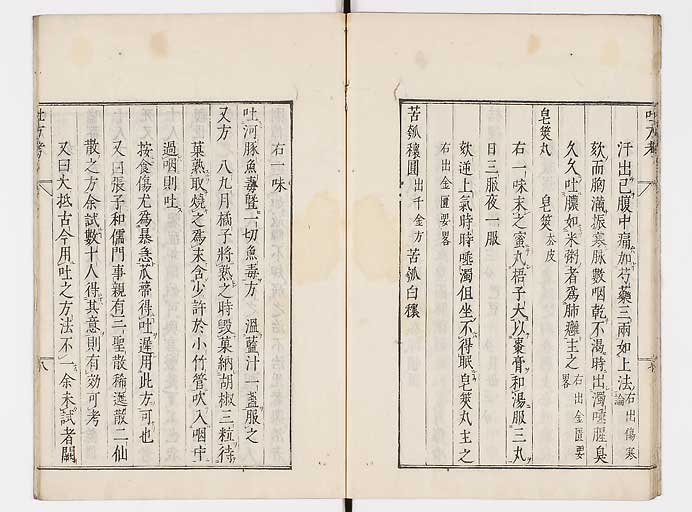 吐方考
汗出已腹中痛加芍藥三兩如上法右出傷寒論
欬而胸滿振寒脉數咽乾不渴時出濁唾腥臭
久久吐膿如米粥者爲肺癰主之右出金匱要畧
皂莢丸 皂莢去皮
右一味末之蜜丸梧子大以棗膏和湯服三丸
日三服夜一服
欬逆上氣時時唾濁但坐不得眠皂莢丸主之
右出金匱要畧
苦瓠穰圓出千金方 苦瓠白穰
右一味
吐河豚魚毒曁一切魚毒方 溫藍汁一盞服之
又方 八九月橘子將熟之時毀菓納胡椒三粒待
菓熟取燒之爲末含少許於小竹管吹入咽中
過咽則吐
按食傷尤爲暴急苽蒂得吐遲用此方可也
又曰張子和儒門事親有三聖散稀涎散二仙
散之方余試數十人得其意則有効可考
又曰大抵古今用吐之方法不一余未試者闕
吐方考
八